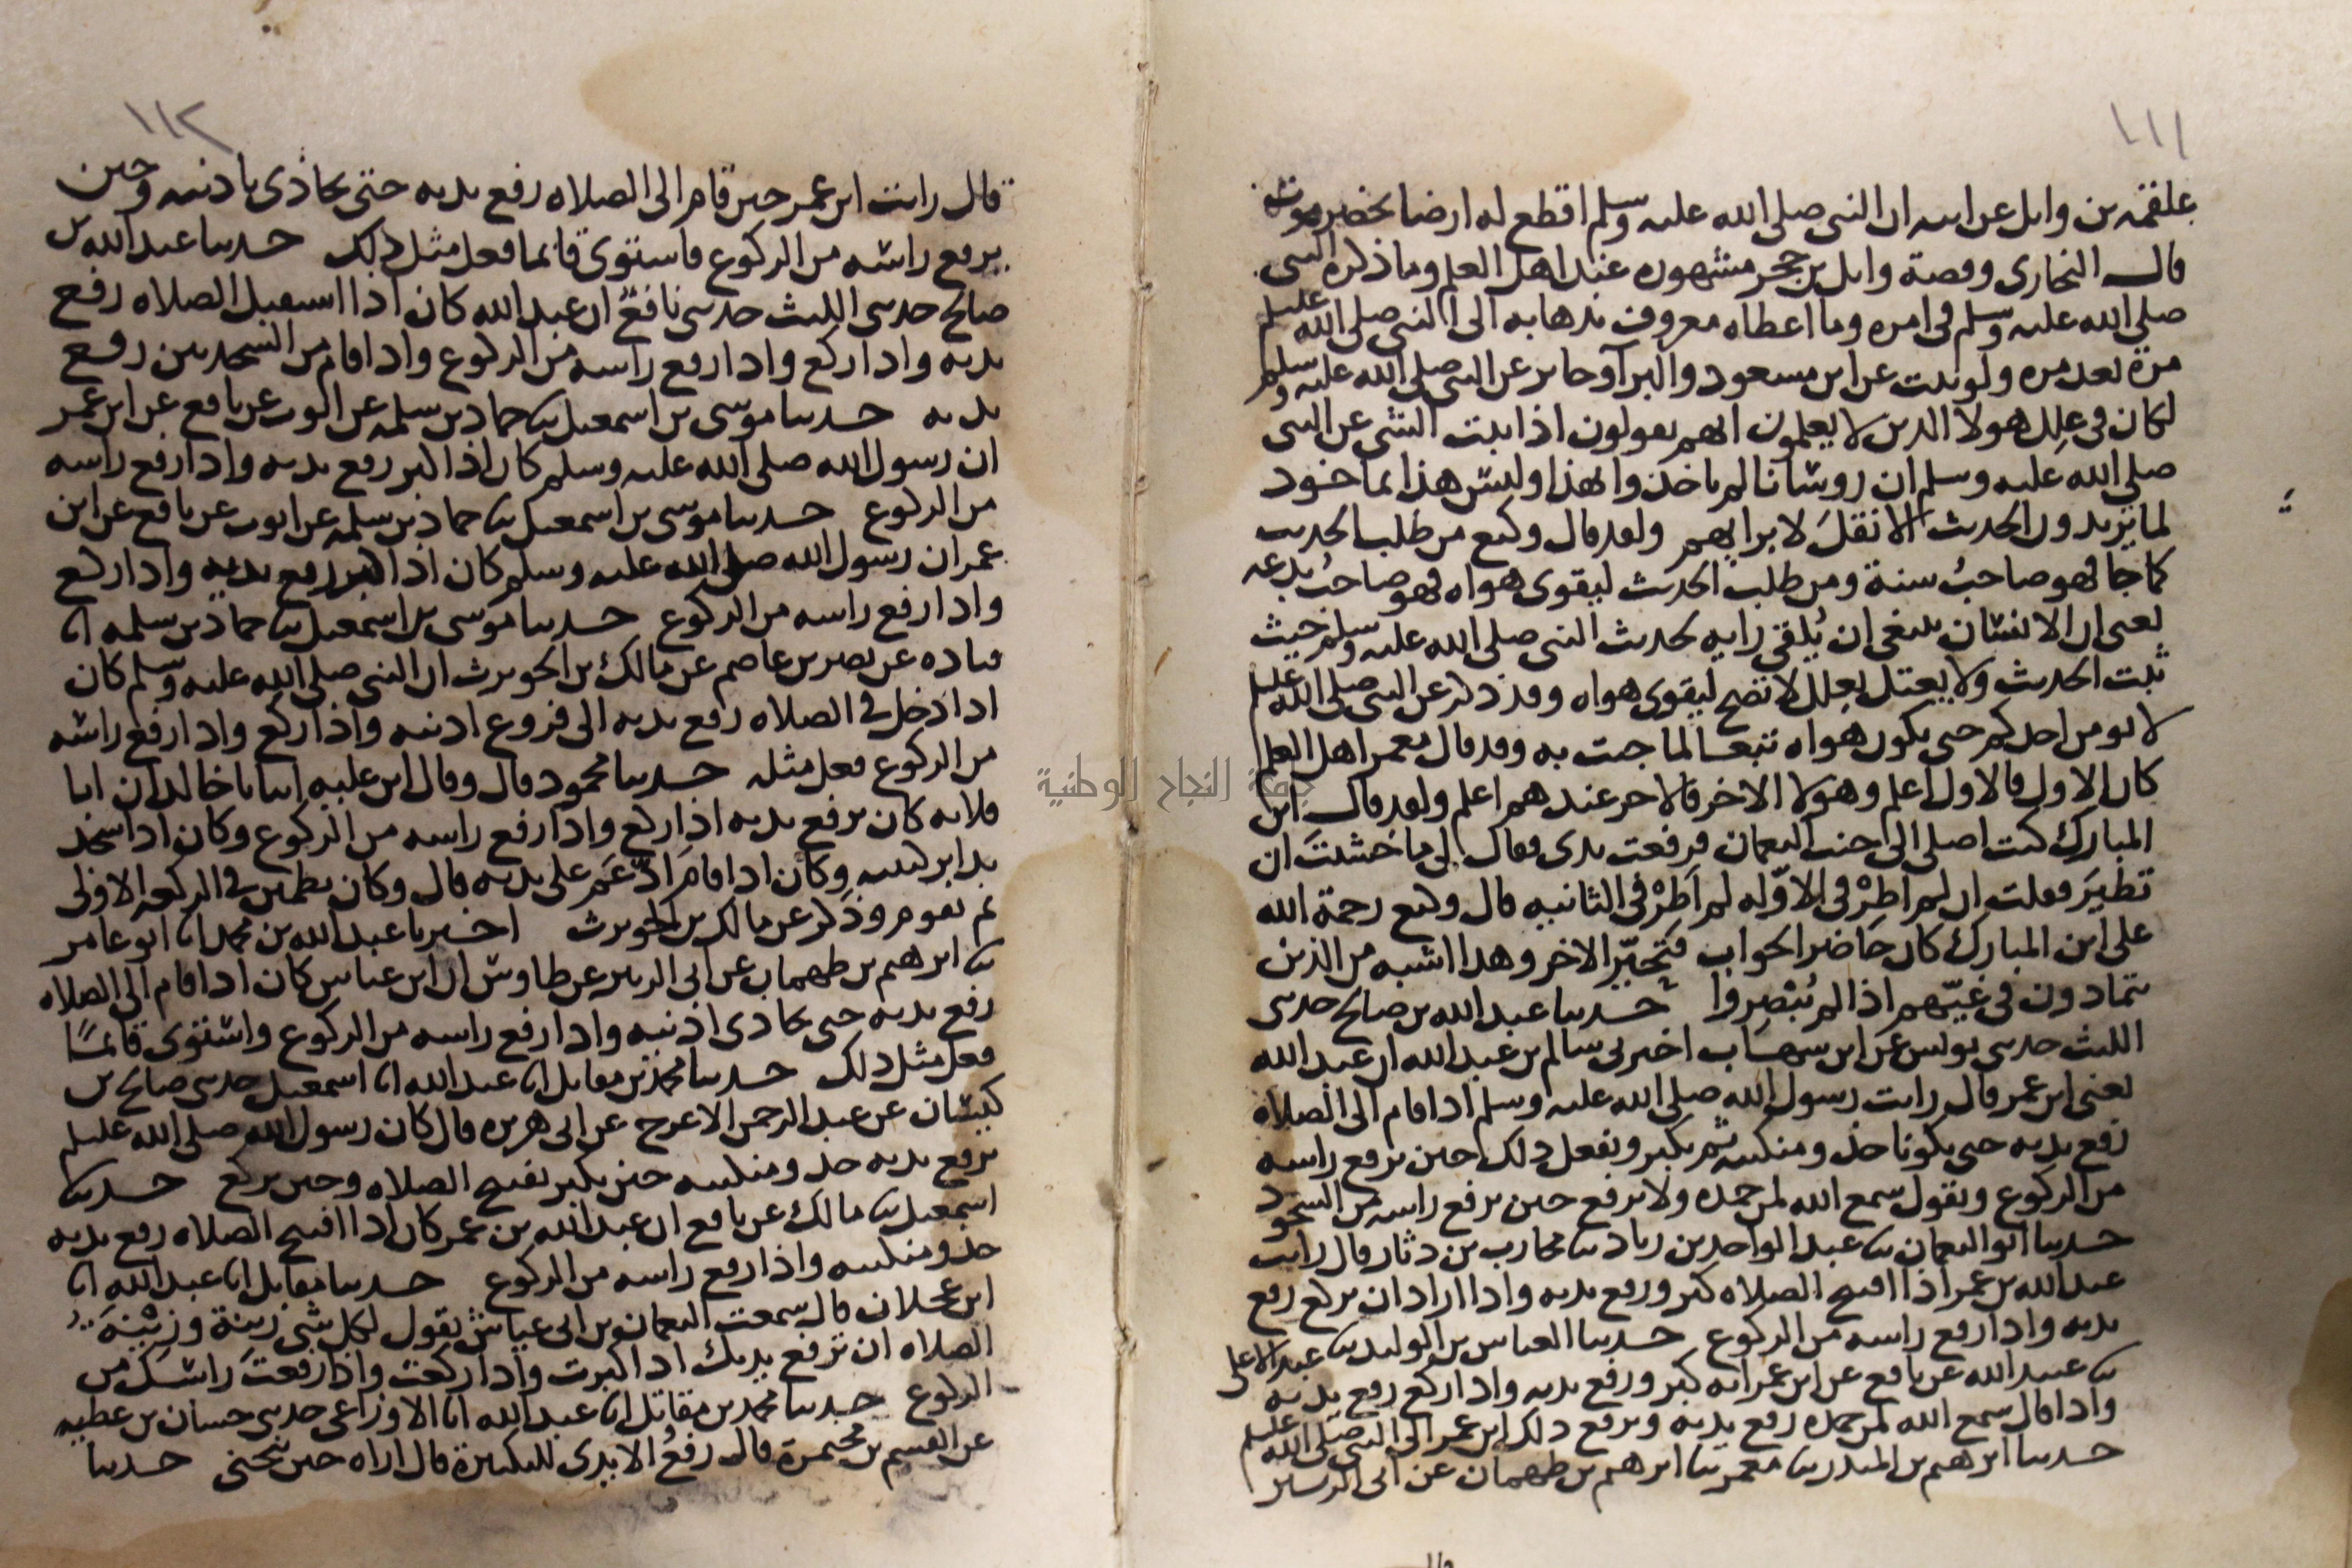 ١١١
علقمه بن وايل عن ابيه ان النبي صلى الله عليه وسلم اقطع له ارضا بحضرموت
قال البخاري وقصة وايل بن حجر مشهوره عند اهل العلم وما ذكره النبي
صلى الله عليه وسلم في امره وما اعطاه معروف بذهابه الى النبي صلى الله عليه وسلم
مرة بعد مره ولو ثبت عن ابن مسعود والبرآ وجابر عن النبي صلى الله عليه وسلم
لكان في علل هولا الذين لا يعلمون انهم يقولون اذا ثبت الشي عن النبي
صلى الله عليه وسلم ان روسانا لم ياخذوا بهذا وليس هذا بماخوذ
لما يزيدون الحديث الا نقلَ لا برايهم ولقد قال وكيع من طلب الحديث
كما جا فهو صاحبُ سنة ومن طلب الحديث ليقوى هواه فهو صاحبُ بدعه
يعني ان الانسان ينبغي ان يُلقي رايه لحديث النبي صلى الله عليه وسلم حيث
ثبت الحديث ولا يعتل بعلل لا تصح ليقوى هواه وقد ذكر عن النبي صلى الله عليه وسلم
لا يومن احدكم حتى يكون هواه تبعا لما جيت به وقد قال معمر اهل العلم
كان الاول فالاول اعلم وهولا الاخر فالاخر عندهم اعلم ولقد قال ابن
المبارك كنت اصلي الى جنب النعمان فرفعت يدي فقال لي ما خشيتَ ان
تطيرَ فقلت ان لم اطِرْ في الاوّله لم اَطِرْ في الثانيه قال وكيع رحمة الله
على ابن المبارك كان حاضر الجواب فتحيّر الاخر وهذا اشبه من الذين
يتمادون في غيّهم اذا لم يُبْصِروا حدثنا عبد الله بن صالح حدثني
الليث حدثني يونس عن ابن شهاب اخبرني سالم بن عبد الله ان عبد الله
يعني ابن عمر قال رايت رسول الله صلى الله عليه وسلم اذا قام الى الصلاة
رفع يديه حتى يكونا حذو منكبيه ثم يكبر ويفعل ذلك حين يرفع راسه
من الركوع ويقول سمع الله لمن حمده ولا يرفع حين يرفع راسه من السجود
حدثنا ابو النعمان ثنا عبد الواحد بن زياد ثنا محارب بن دثار قال رايت
عبد الله بن عمر اذا افتتح الصلاه كبر ورفع يديه واذا اراد ان يركع رفع
يديه واذا رفع راسه من الركوع حدثنا العباس بن الوليد ثنا عبد الاعلى
ثنا عبيد الله عن نافع عن ابن عمر انه كبر ورفع يديه واذا ركع رفع يديه
واذا قال سمع الله لمن حمده رفع يديه ويرفع ذلك ابن عمر الى النبي صلى الله عليه وسلم
حدثنا ابرهيم بن المنذر ثنا معمر ثنا ابرهيم بن طهمان عن ابي الزبير
قال
١١٢
قال رايت ابن عمر حين قام الى الصلاه رفع يديه حتى يحاذي باذنيه وحين
يرفع راسه من الركوع فاستوى قايما فعل مثل ذلك حدثنا عبد الله بن
صالح حدثني الليث حدثني نافعٌ ان عبد الله كان اذا استقبل الصلاه رفع
يديه واذا ركع واذا رفع راسه من الركوع واذا قام من السجدتين رفع
يديه حدثنا موسى بن اسمعيل ثنا حماد بن سلمه عن ايوب عن نافع عن ابن عمر
ان رسول الله صلى الله عليه وسلم كان اذا كبر رفع يديه واذا رفع راسه
من الركوع حدثنا موسى بن اسمعيل ثنا حماد بن سلمه عن ايوب عن نافع عن ابن
عمر ان رسول الله صلى الله عليه وسلم كان اذا كبر رفع يديه واذا ركع
واذا رفع راسه من الركوع حدثنا موسى بن اسمعيل ثنا حماد بن سلمه انا
قتاده عن نصر بن عاصم عن مالك بن الحويرث ان النبي صلى الله عليه وسلم كان
اذا دخل في الصلاه رفع يديه الى فروع اذنيه واذا ركع واذا رفع راسه
من الركوع فعل مثله حدثنا محمود قال وقال ابن عليه انبانا خالد ان ابا
قلابه كان يرفع يديه اذا ركع واذا رفع راسه من الركوع وكان اذا سجد
بدا بركبتيه وكان اذا قام ادّعَم على يديه قال وكان يطمين في الركعه الاولى
ثم يقوم وذكر عن مالك بن الحويرث اخبرنا عبد الله بن محمد انا ابو عامر
ثنا ابرهيم بن طهمان عن ابي الزبير عن طاوس ان ابن عباس كان اذا قام الى الصلاه
رفع يديه حتى يحاذي اذنيه واذا رفع راسه من الركوع واستوى قايمًا
فعل مثل ذلك حدثنا محمد بن مقاتل انا عبد الله انا اسمعيل حدثني صالح بن
كيسان عن عبد الرحمن الاعرج عن ابي هريره قال كان رسول الله صلى الله عليه وسلم
يرفع يديه حذو منكبيه حين يكبر يفتتح الصلاه وحين يركع حدثنا
اسمعيل ثنا مالك عن نافع ان عبد الله بن عمر كان اذا افتتح الصلاه رفع يديه
حذو منكبيه واذا رفع راسه من الركوع حدثنا مقاتل انا عبد الله انا
ابن عجلان قال سمعت النعمان بن ابي عياش يقول لكل شي زينة وزينة
الصلاه ان ترفع يديك اذا كبرت واذا ركعت واذا رفعت راسك من
الركوع حدثنا محمد بن مقاتل انا عبد الله انا الاوزاعي حدثني حسان بن عطيه
عن القسم بن مخيمرة قال رفعُ الايدي للتكبيرة قال اراه حين ينحني حدثنا
جامعة النجاح الوطنية